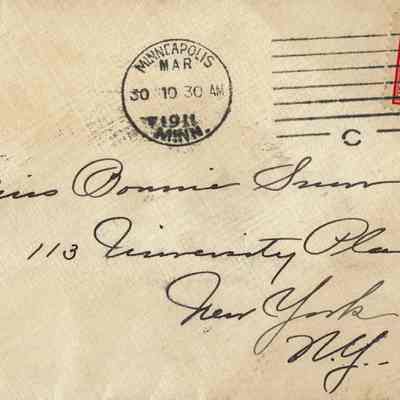 MINNEAPOLIS
MAR
30 10 30 AM
1911
MINN.
C
iss Bonnie Snow
113 University Pla
New York
N.Y.